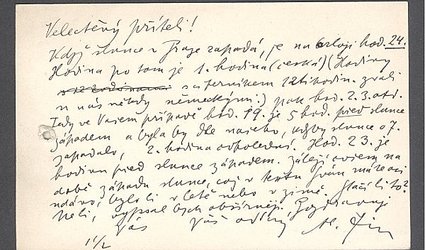 Velectěný příteli!
Když slunce v Praze zapadá, je na orloji hod. 24.
Hodina po tom je 1. hodina (česká) (Hodiny
s ciferníkem 12ti hodin. zvali
u nás někdy německými) pak hod. 2. 3. atd.
Tedy ve Vašem případě hod. 19. je 5 hod. před slunce
západem a byla by dle našeho, kdyby slunce o 7.
zapadalo, 2. hodina odpolední. Hod. 23. je
hodinu před slunce západem. Záleží ovšem na
době západu slunce, což v textu Vám může
udáno, bylo li v létě nebo v zimě. Stačí li to?
Neli, vypsal bych obšírněji. Pozdravuji
Vás Váš oddaný
11/2